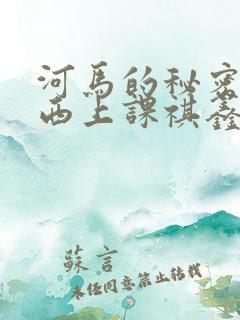 河馬的秘密
西上課祺鑫
蘇言
未经同意禁止转载